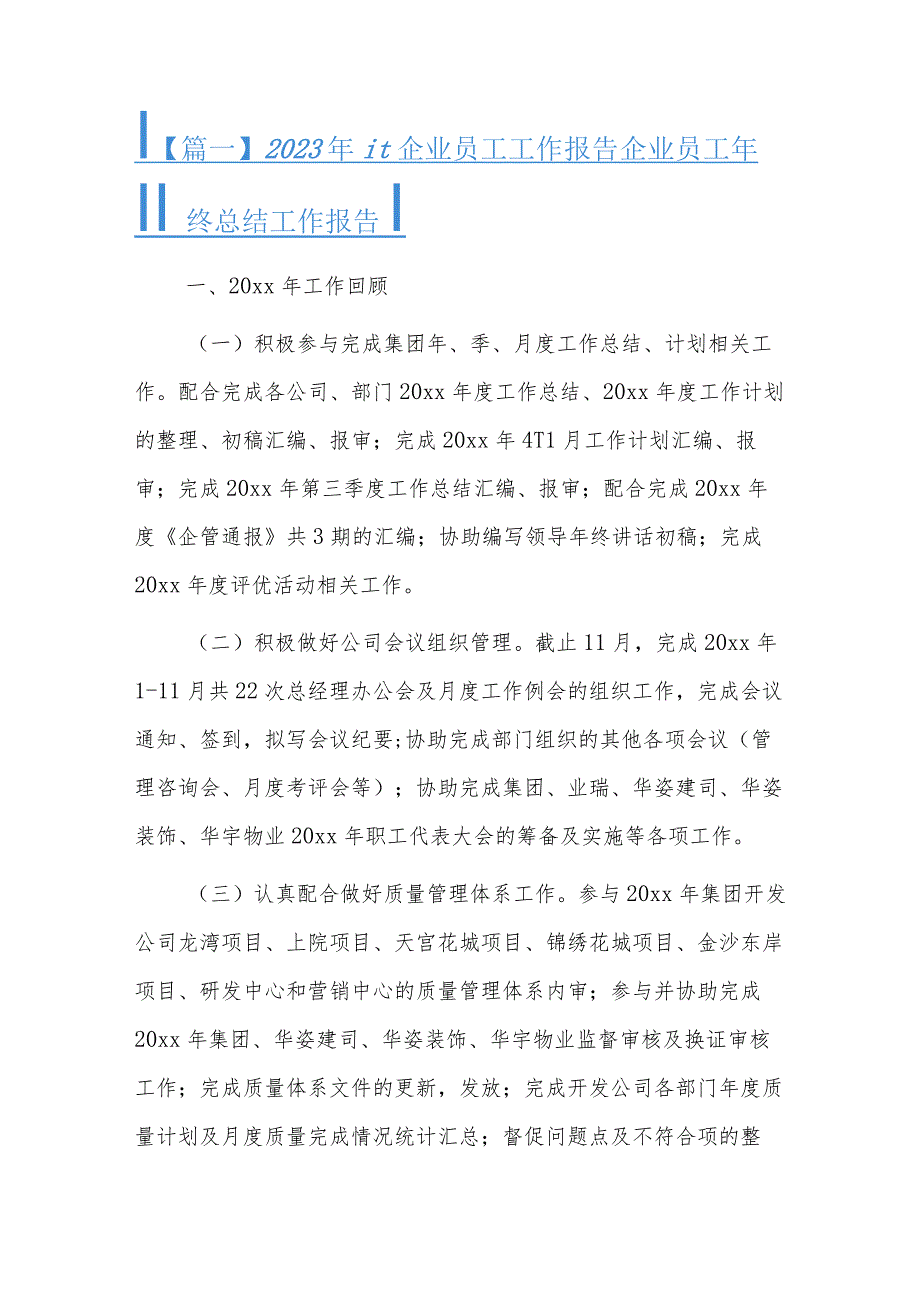 【篇一】2023年it企业员工工作报告企业员工年
终总结工作报告
一、20xx年工作回顾
（一）积极参与完成集团年、季、月度工作总结、计划相关工
作。配合完成各公司、部门20xx年度工作总结、20xx年度工作计划
的整理、初稿汇编、报审；完成20xx年4T1月工作计划汇编、报
审；完成20xx年第三季度工作总结汇编、报审；配合完成20xx年
度《企管通报》共3期的汇编；协助编写领导年终讲话初稿；完成
20xx年度评优活动相关工作。
（二）积极做好公司会议组织管理。截止11月，完成20xx年
1-11月共22次总经理办公会及月度工作例会的组织工作，完成会议
通知、签到，拟写会议纪要;协助完成部门组织的其他各项会议（管
理咨询会、月度考评会等）；协助完成集团、业瑞、华姿建司、华姿
装饰、华宇物业20xx年职工代表大会的筹备及实施等各项工作。
（三）认真配合做好质量管理体系工作。参与20xx年集团开发
公司龙湾项目、上院项目、天宫花城项目、锦绣花城项目、金沙东岸
项目、研发中心和营销中心的质量管理体系内审；参与并协助完成
20xx年集团、华姿建司、华姿装饰、华宇物业监督审核及换证审核
工作；完成质量体系文件的更新，发放；完成开发公司各部门年度质
量计划及月度质量完成情况统计汇总；督促问题点及不符合项的整